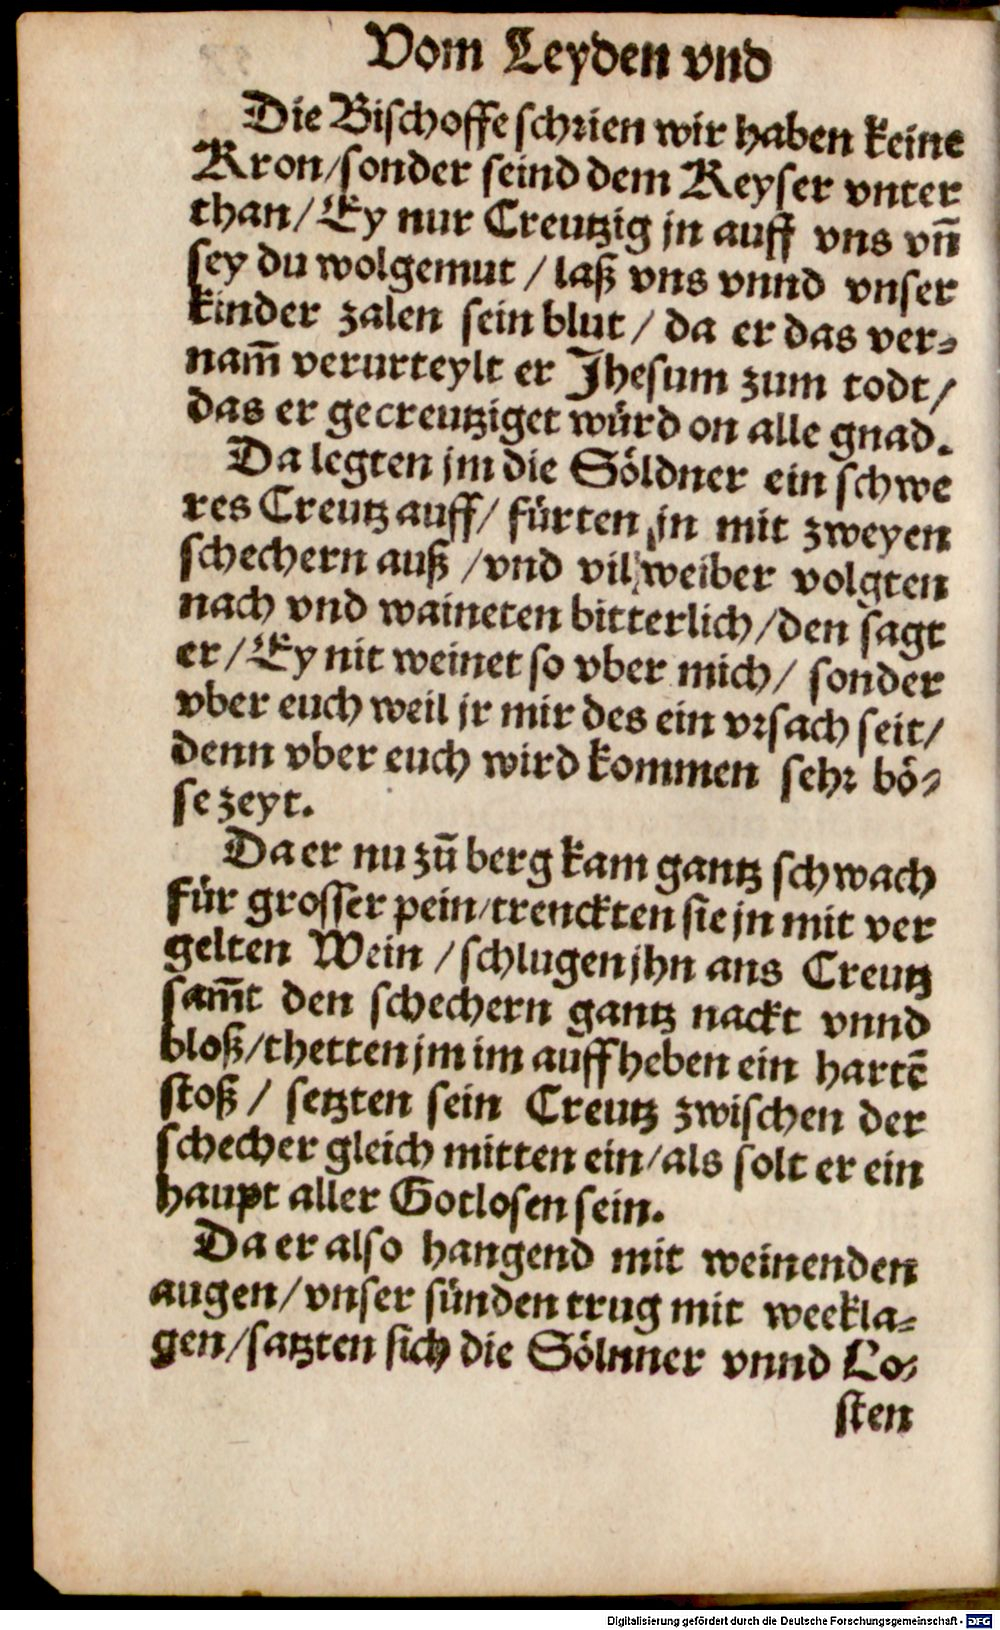 Vom Leyden vnd
Die Bischoffe schrien wir haben keine
Kron/sonder seind dem Keyser vnter
than/ Ey nur Creutzig jn auff vns vñ
sey du wolgemut / laß vns vnnd vnser
kinder zalen sein blut / da er das ver-
nam̃ verurteylt er Jhesum zum todt/
das er gecreutziget würd on alle gnad.
Da legten jm die Söldner ein schwe
res Creutz auff/ fürten jn mit zweyen
schechern auß /vnd vil weiber volgten
nach vnd waineten bitterlich/den sagt
er/Ey nit weinet so vber mich/ sonder
vber euch weil jr mir des ein vrsach seit/
denn vber euch wird kommen sehr bö-
se zeyt.
Da er nu zũ berg kam gantz schwach
für grosser pein/trenckten sie jn mit ver
gelten Wein /schlugen jhn ans Creutz
sam̃t den schechern gantz nackt vnnd
bloß/thetten jm im auffheben ein hartẽ
stoß / setzten sein Creutz zwischen der
schecher gleich mitten ein/als solt er ein
haupt aller Gotlosen sein.
Da er also hangend mit weinenden
augen/vnser sünden trug mit weekla-
gen/satzten sich die Sölnner vnnd Lo-
sten
Digitalisierung gefördert durch die Deutsche Forschungsgemeinschaft - DFG